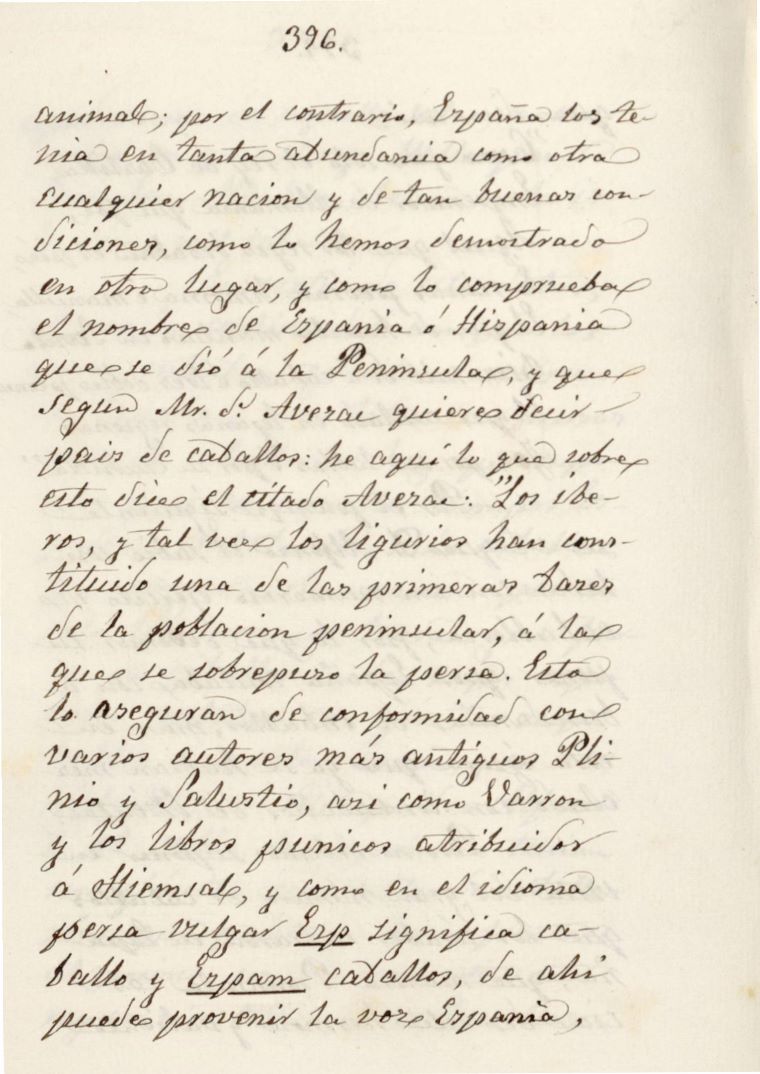 396.
animal; por el contrario, España los te-
nia en tanta abundancia como otra
cualquier nacion y de tan buenas con-
diciones, como lo hemos demostrado
en otro lugar, y como lo comprueba
el nombre de Espania ó Hispania
que se dió á la Peninsula, y que
segun Mr. d. Avezac quiere decir
pais de caballos: he aquí lo que sobre
esto dice el citado Avezac: "Los ibe-
ros, y tal vez los ligurios han cons-
tituido una de las primeras bases
de la poblacion peninsular, á la
que se sobrepuso la persa. Esto
lo aseguran de conformidad con
varios autores más antiguos Pli-
nio y Salustio, asi como Varron
y los libros punicos atribuidos
á Hiemsal, y como en el idioma
persa vulgar Esp significa ca-
ballo y Espam caballos, de ahi
puede provenir la voz Espania,